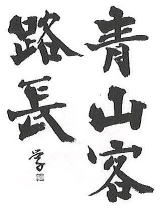 青山客
路長
学